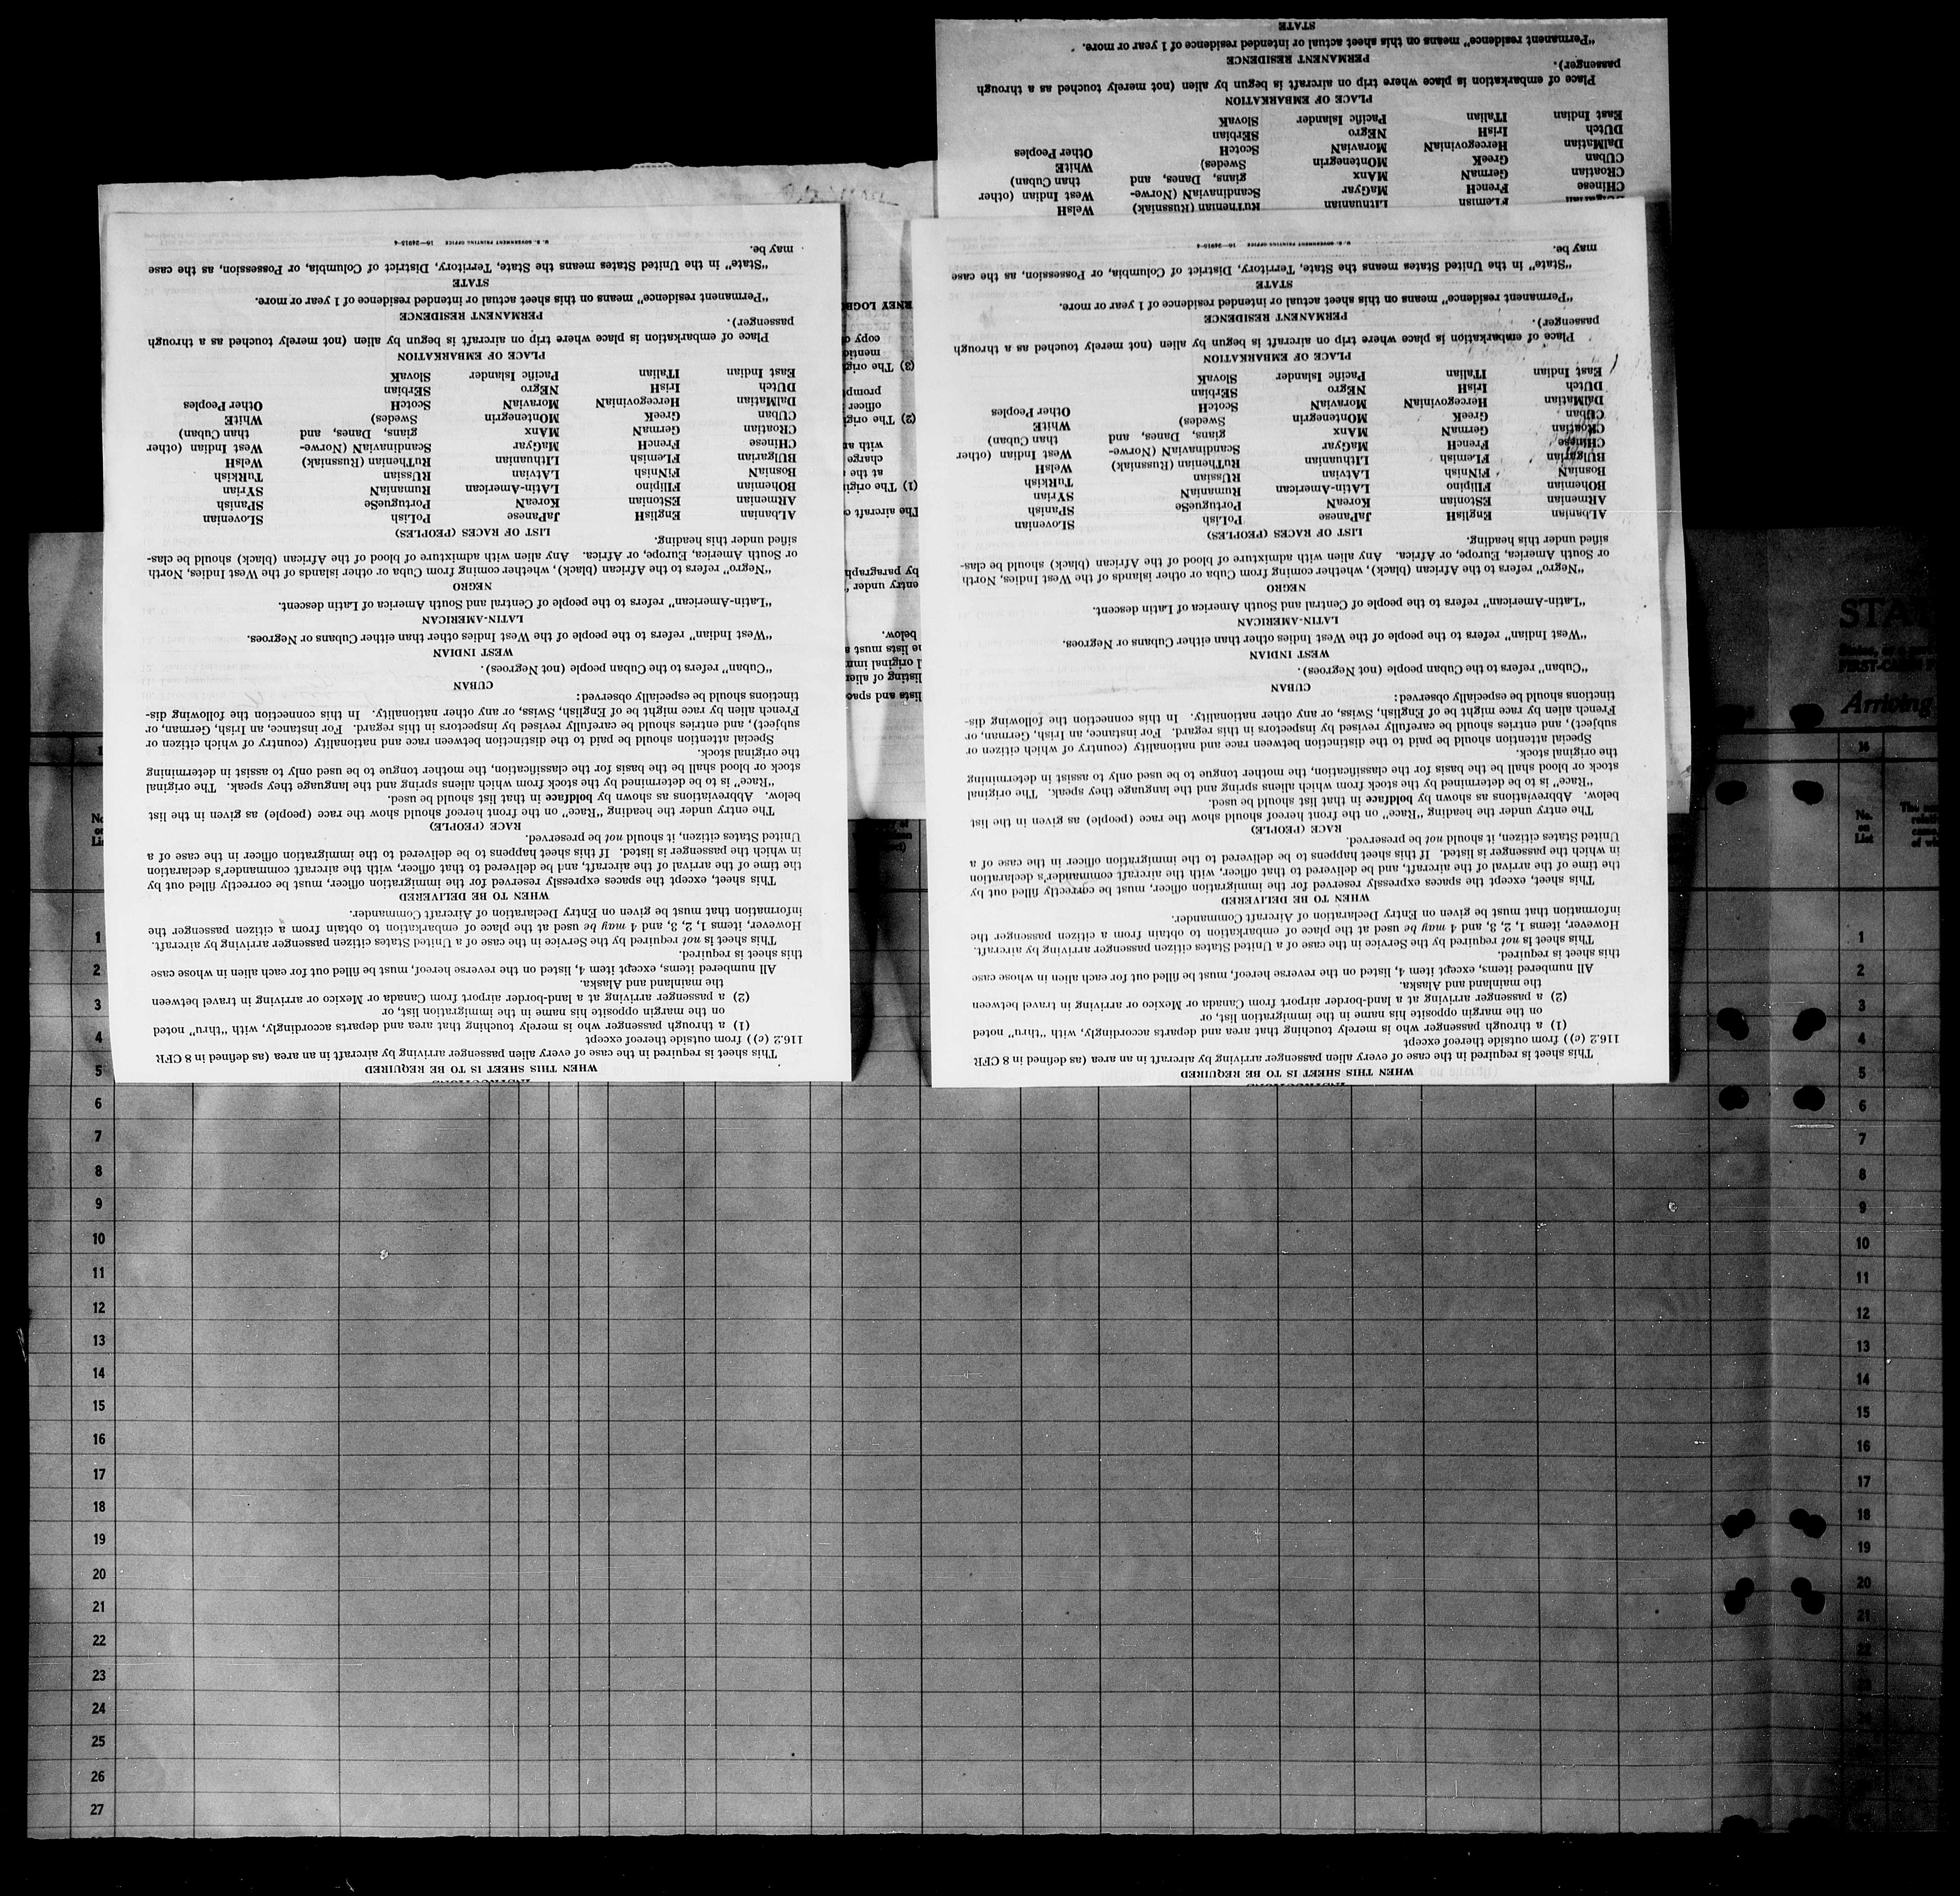 INSTRUCTIONS
WHEN THIS SHEET IS TO BE REQUIRED
This sheet is required in the case of every alien passenger arriving by aircraft in an area (as defined in 8 CFR
116.2 (c)) from outside thereof except
(1) a through passenger who is merely touching that area and departs accordingly, with "thru" noted
on the margin opposite his name in the immigration list, or
(2) a passenger arriving at a land-border airport from Canada or Mexico or arriving in travel between
the mainland and Alaska.
All numbered items, except item 4, listed on the reverse hereof, must be filled out for each alien in whose case
this sheet is required.
This sheet is not required by the Service in the case of a United States citizen passenger arriving by aircraft.
However, items 1, 2, 3, and 4 may be used at the place of embarkation to obtain from a citizen passenger the
information that must be given on Entry Declaration of Aircraft Commander.
WHEN TO BE DELIVERED
This sheet, except the spaces expressly reserved for the immigration officer, must be correctly filled out by
the time of the arrival of the aircraft, and be delivered to that officer, with the aircraft commander's declaration
in which the passenger is listed. If this sheet happens to be delivered to the immigration officer in the case of a
United States citizen, it should not be preserved.
RACE (PEOPLE)
The entry under the heading "Race" on the front hereof should show the race (people) as given in the list
below. Abbreviations as shown by boldface in that list should be used.
"Race" is to be determined by the stock from which aliens spring and the language they speak. The original
stock or blood shall be the basis for the classification, the mother tongue to be used only to assist in determining
the original stock.
Special attention should be paid to the distinction between race and nationality (country of which citizen or
subject), and entries should be carefully revised by inspectors in this regard. For instance, an Irish, German, or
French alien by race might be of English, Swiss, or any other nationality. In this connection the following dis-
tinctions should be especially observed:
CUBAN
"Cuban" refers to the Cuban people (not Negroes).
WEST INDIAN
"West Indian" refers to the people of the West Indies other than either Cubans or Negroes.
LATIN-AMERICAN
"Latin-American" refers to the people of Central and South America of Latin descent.
NEGRO
"Negro" refers to the African (black), whether coming from Cuba or other islands of the West Indies, North
or South America, Europe, or Africa. Any alien with admixture of blood of the African (black) should be clas-
sified under this heading.
LIST OF RACES (PEOPLES)
ALbanian EnglisH JaPanese PoLish SLovenian
ARmenian EStonian KoreaN PortugueSe SPanish
BOhemian FIlipino LAtin-American RumaniaN SYrian
BosniaN FiNnish LAtvian RUssian TuRkish
BUlgarian FLemish LIthuanian RuThenian (Russniak) WelsH
CHinese FrencH MaGyar ScandinaviaN (Norwe- West Indian (other
CRoatian GermaN MAnx gians, Danes, and than Cuban)
CUban GreeK MOntenegrin Swedes) WhitE
DalMatian HercegoviniaN MoraviaN ScotcH Other Peoples
DUtch IrisH NEgro SErbian
East Indian ITalian Pacific Islander SlovaK
PLACE OF EMBARKATION
Place of embarkation is place where trip on aircraft is begun by alien (not merely touched as a through
passenger).
PERMANENT RESIDENCE
"Permanent residence" means on this sheet actual or intended residence of 1 year or more.
STATE
"State" in the United States means the State, Territory, District of Columbia, or Possession, as the case
may be.
U. S. GOVERNMENT PRINTING OFFICE 16—24915-4
WHEN THIS SHEET IS TO BE REQUIRED
This sheet is required in the case of every alien passenger arriving by aircraft in an area (as defined in 8 CFR
116.2 (c)) from outside thereof except
(1) a through passenger who is merely touching that area and departs accordingly, with "thru" noted
on the margin opposite his name in the immigration list, or
(2) a passenger arriving at a land-border airport from Canada or Mexico or arriving in travel between
the mainland and Alaska.
All numbered items, except item 4, listed on the reverse hereof, must be filled out for each alien in whose case
this sheet is required.
This sheet is not required by the Service in the case of a United States citizen passenger arriving by aircraft.
However, items 1, 2, 3, and 4 may be used at the place of embarkation to obtain from a citizen passenger the
information that must be given on Entry Declaration of Aircraft Commander.
WHEN TO BE DELIVERED
This sheet, except the spaces expressly reserved for the immigration officer, must be correctly filled out by
the time of the arrival of the aircraft, and be delivered to that officer, with the aircraft commander's declaration
in which the passenger is listed. If this sheet happens to be delivered to the immigration officer in the case of a
United States citizen, it should not be preserved.
RACE (PEOPLE)
The entry under the heading "Race" on the front hereof should show the race (people) as given in the list
below. Abbreviations as shown by boldface in that list should be used.
"Race" is to be determined by the stock from which aliens spring and the language they speak. The original
stock or blood shall be the basis for the classification, the mother tongue to be used only to assist in determining
the original stock.
Special attention should be paid to the distinction between race and nationality (country of which citizen or
subject), and entries should be carefully revised by inspectors in this regard. For instance, an Irish, German, or
French alien by race might be of English, Swiss, or any other nationality. In this connection the following dis-
tinctions should be especially observed:
CUBAN
"Cuban" refers to the Cuban people (not Negroes).
WEST INDIAN
"West Indian" refers to the people of the West Indies other than either Cubans or Negroes.
LATIN-AMERICAN
"Latin-American" refers to the people of Central and South America of Latin descent.
NEGRO
"Negro" refers to the African (black), whether coming from Cuba or other islands of the West Indies, North
or South America, Europe, or Africa. Any alien with admixture of blood of the African (black) should be clas-
sified under this heading.
LIST OF RACES (PEOPLES)
ALbanian EnglisH JaPanese PoLish SLovenian
ARmenian EStonian KoreaN PortugueSe SPanish
BOhemian FIlipino LAtin-American RumaniaN SYrian
BosniaN FiNnish LAtvian RUssian TuRkish
BUlgarian FLemish LIthuanian RuThenian (Russniak) WelsH
CHinese FrencH MaGyar ScandinaviaN (Norwe- West Indian (other
CRoatian GermaN MAnx gians, Danes, and than Cuban)
CUban GreeK MOntenegrin Swedes) WhitE
DalMatian HercegoviniaN MoraviaN ScotcH Other Peoples
DUtch IrisH NEgro SErbian
East Indian ITalian Pacific Islander SlovaK
PLACE OF EMBARKATION
Place of embarkation is place where trip on aircraft is begun by alien (not merely touched as a through
passenger).
PERMANENT RESIDENCE
"Permanent residence" means on this sheet actual or intended residence of 1 year or more.
STATE
"State" in the United States means the State, Territory, District of Columbia, or Possession, as the case
may be.
U. S. GOVERNMENT PRINTING OFFICE 16—24915-4
FLemish LIthuanian RuThenian (Russniak) WelsH
CHinese FrencH MaGyar ScandinaviaN (Norwe- West Indian (other
CRoatian GermaN MAnx gians, Danes, and than Cuban)
CUban GreeK MOntenegrin Swedes) WhitE
DalMatian HercegoviniaN MoraviaN ScotcH Other Peoples
DUtch IrisH NEgro SErbian
East Indian ITalian Pacific Islander SlovaK
PLACE OF EMBARKATION
Place of embarkation is place where trip on aircraft is begun by alien (not merely touched as a through
passenger).
PERMANENT RESIDENCE
"Permanent residence" means on this sheet actual or intended residence of 1 year or more.
STATE
lists and spac
listing of alie
original im
ne lists must
below.
entry under "
by paragraph
The aircraft
(1) The orig
at the
charge
with
(2) The orig
officer
prompt
(3) The orig
mentio
copy
RNEY LOGB
STA
FIRST-CABIN
Arriving
14
No.
on
List
1
2
3
4
5
6
7
8
9
10
11
12
13
14
15
16
17
18
19
20
21
22
23
24
25
26
27
1
2
3
4
5
6
7
8
9
10
11
12
13
14
15
16
17
18
19
20
21
22